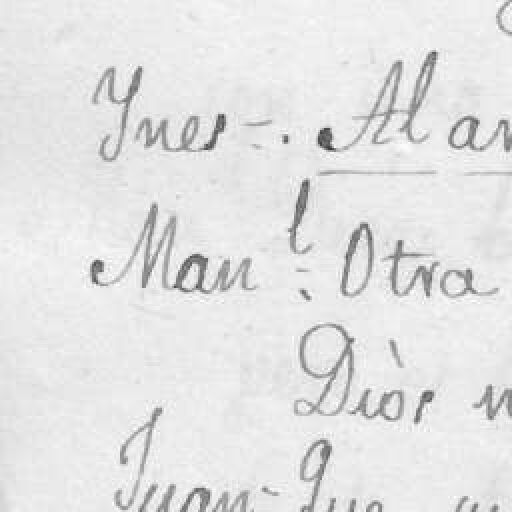 Ynes=. Al an
Man^l: Otra
Diòs
Juan= Que